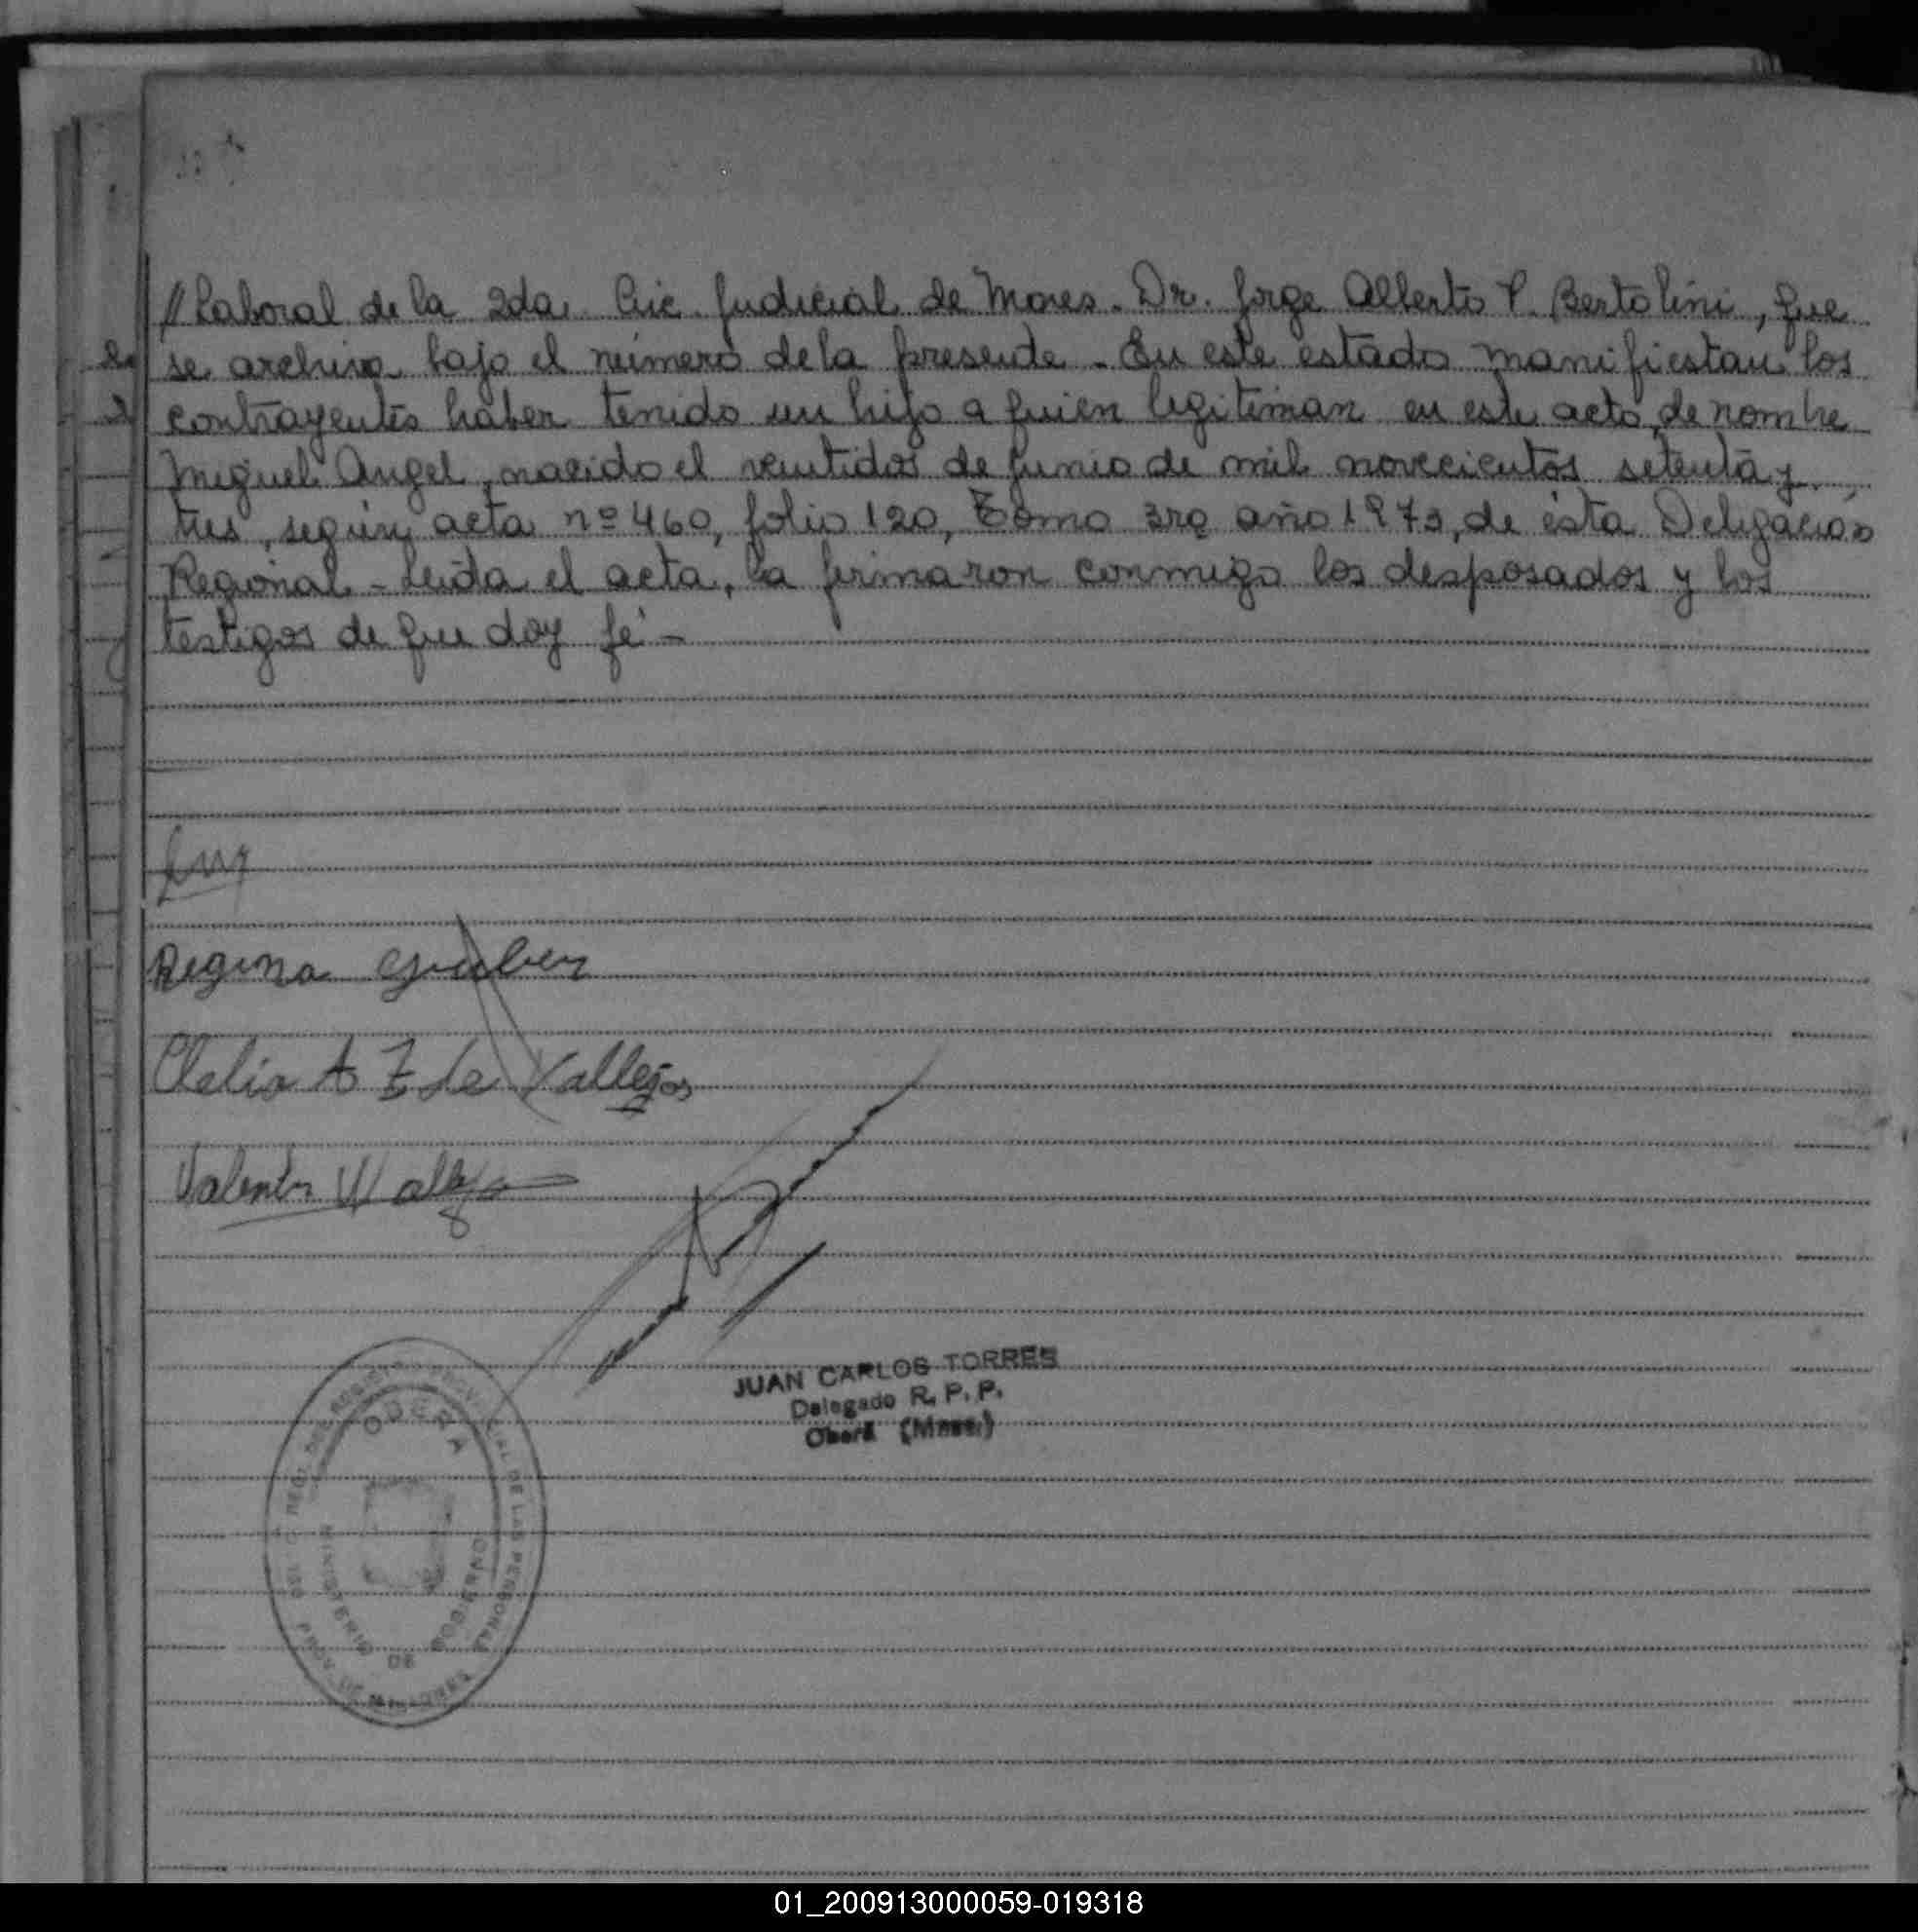 // Laboral de la 2da. Circ. Judicial de Mnes. Dr. Jorge Alberto P. Bertolini, que
se archiva bajo el número de la presente - En este estado manifiestan los
contrayentes haber tenido un hijo a quien legitiman en este acto, de nombre
Miguel Angel, nacido el veintidos de junio de mil novecientos setenta y
tres, según acta nº 460, folio 120, Tomo 3ro año 1973, de ésta Delegación
Regional - Leída el acta, la firmaron conmigo los desposados y los
testigos de que doy fé -
Regina Gruber
Clelia A Z de Vallejos
Valentin Vallejos
JUAN CARLOS TORRES
Delegado R. P. P.
Oberá (Mnes.)
OBERA
MINISTERIO DE GOBIERNO
PROVINCIAL DE LAS PERSONAS
01_200913000059-019318